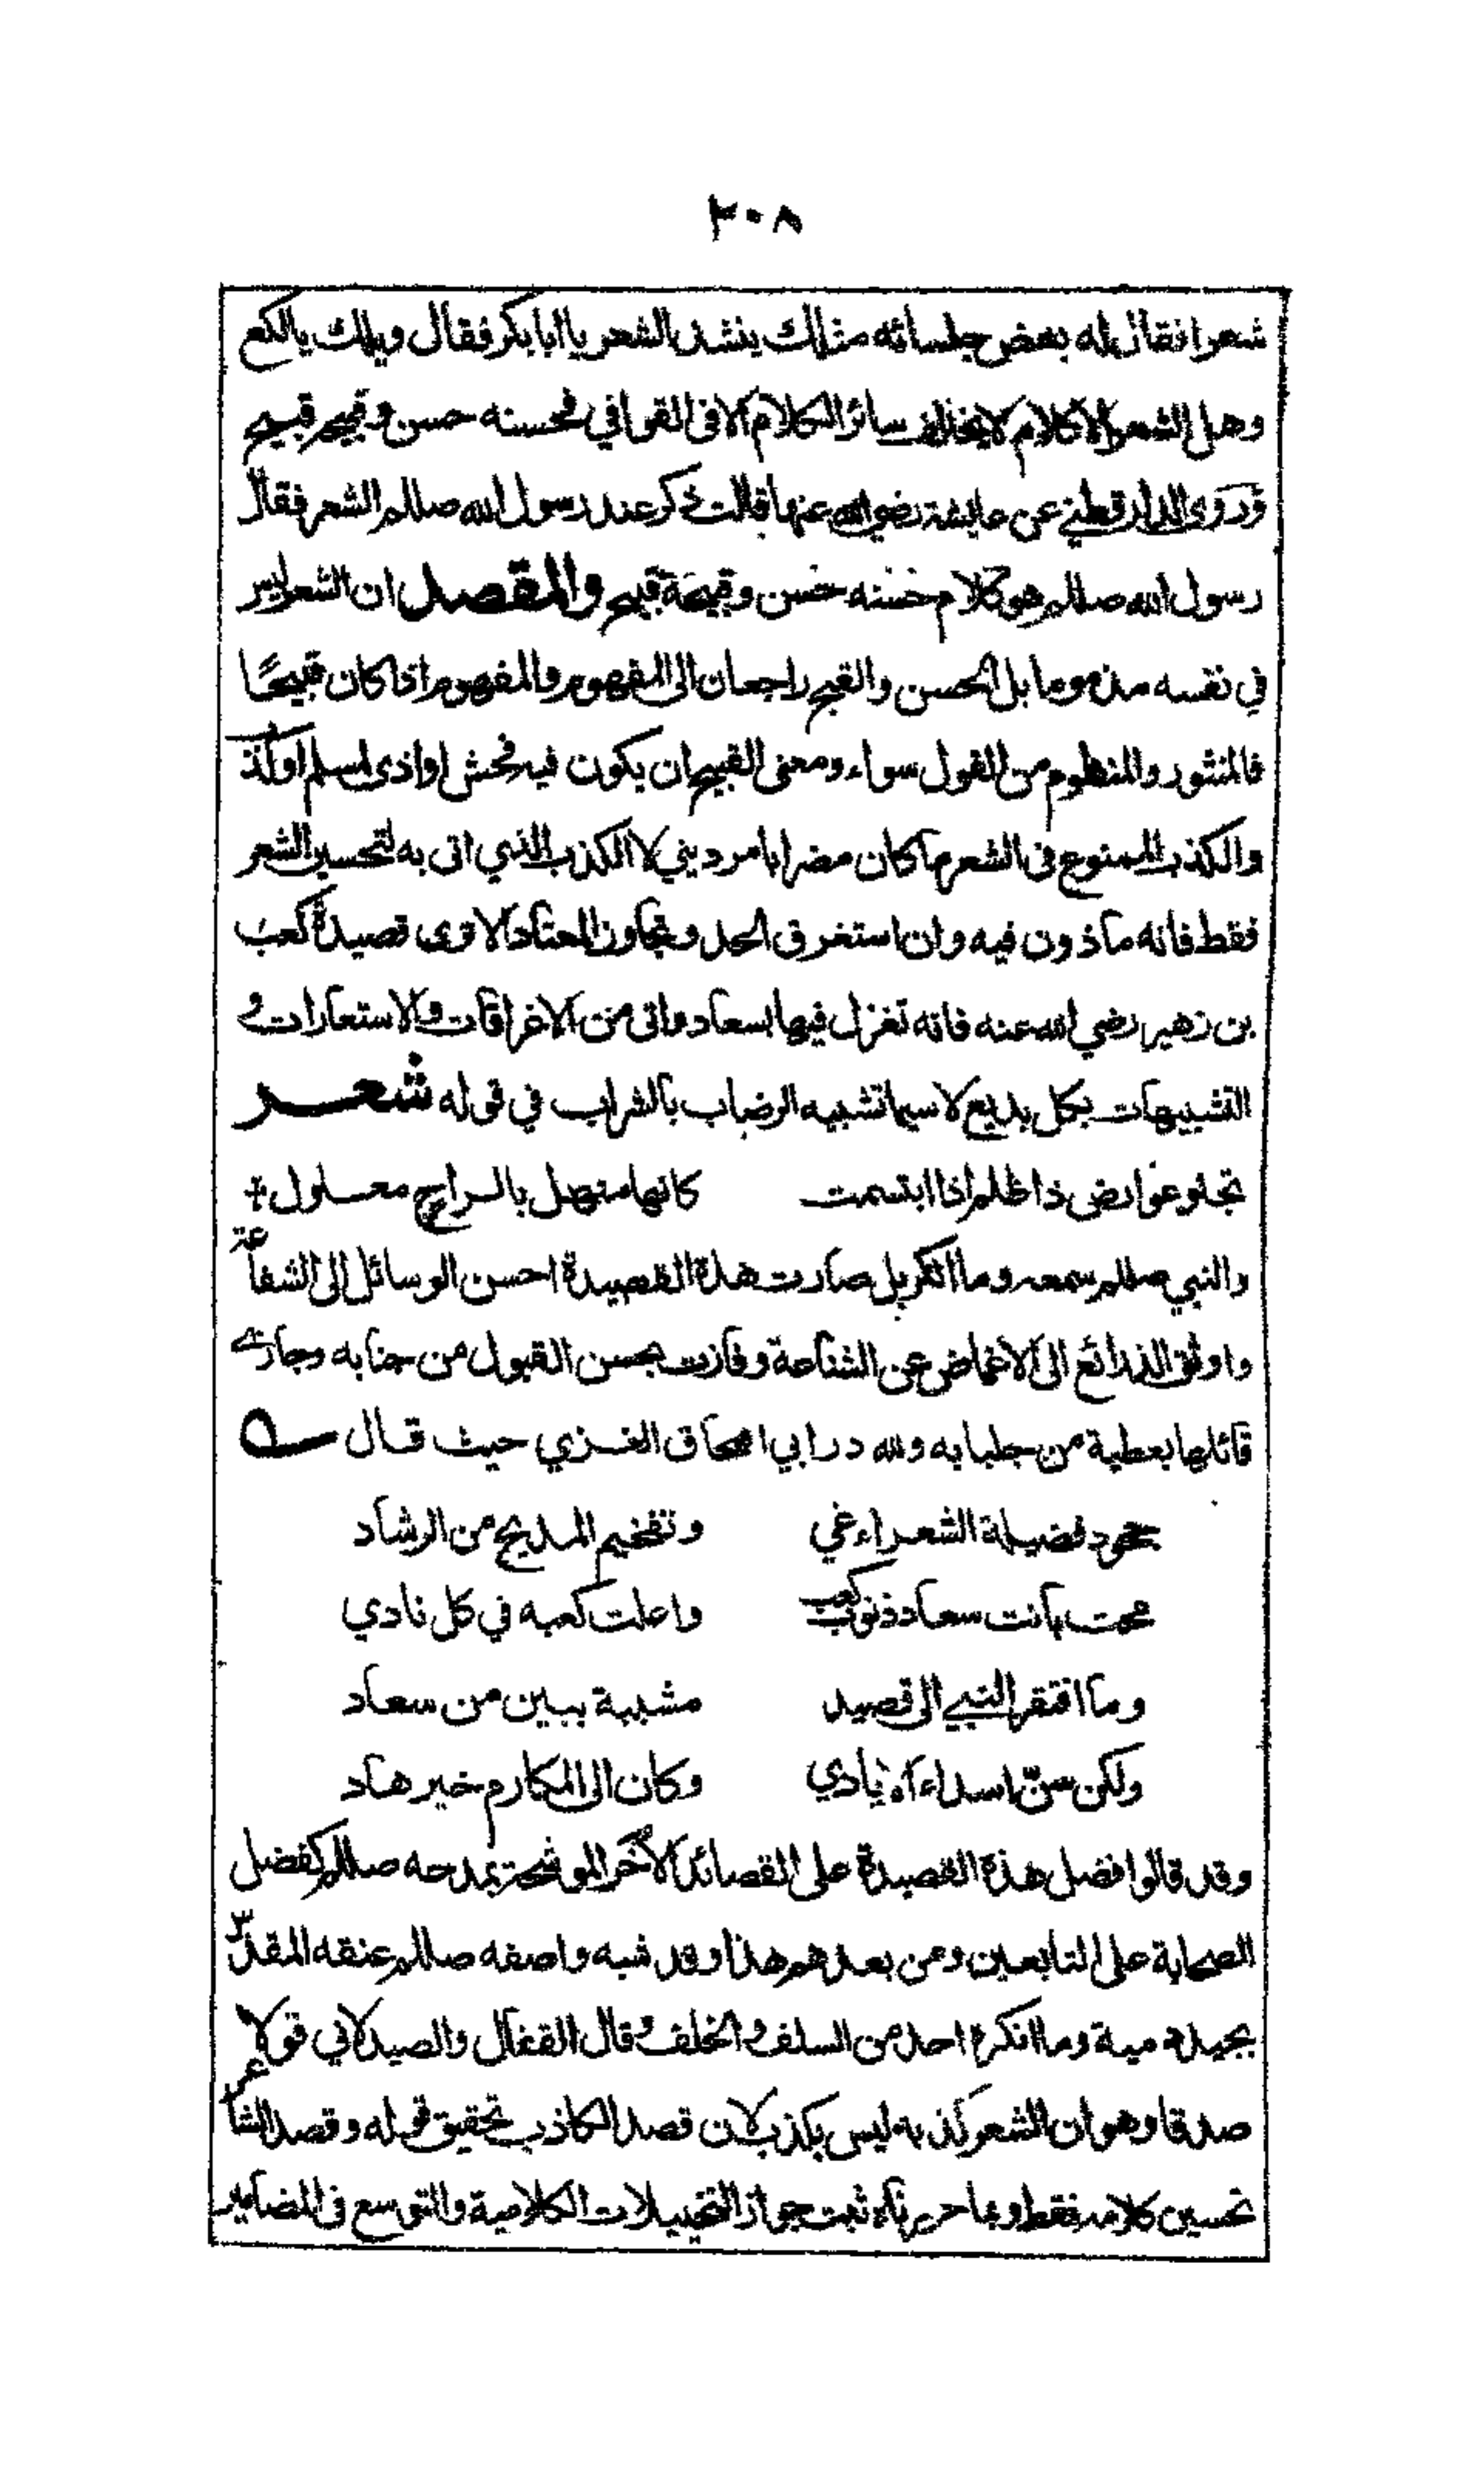 ٢٠٨
شعرا فقال له بعض جلسائه مثلك ينشد الشعر يا ابا بكر فقال ويلك يا لكع
وهل الشعر الا كلام لا يخالف سائر الكلام الا فى القوافي فحسنه حسن وقبيحه قبيح
وروى الدارقطني عن عايشة رضي الله عنها قالت ذكر عند رسول الله صللم الشعر فقال
رسول الله صللم هو كلام حسنه حسن وقبيحه قبيح والمقصد ان الشعر ليس
في نفسه مذموما بل الحسن والقبح راجعان الى المفهوم والمفهوم اذا كان قبيحًا
فالمنثور والمنظوم من القول سواء ومعنى القبيح ان يكون فيه فحش او اذى لمسلم او كذب
والكذب الممنوع فى الشعر ما كان مضرا بامر ديني لا الكذب الذي اتى به لتحسين الشعر
فقط فانه ماذون فيه وان استغرق الحد وتجاوز المعتاد الا ترى قصيدة كعب
بن زهير رضي الله عنه فانه تغزل فيها بسعاد واتى من الاغراقات والاستعارات و
التشبيهات بكل بديع لا سيما تشبيه الرضاب بالشراب في قوله شعر
تجلو عوارض ذا ظلم اذا ابتسمت كانها منهل بالراح معلول
والنبي صللم سمعه وما انكر بل صارت هذه القصيدة احسن الوسائل الى الشفاعة
واوثق الذرائع الى الاغماض عن الشناعة وفازت بحسن القبول من جنابه وجازت
قائلها بعطية من جلبابه ولله در ابي اسحاق الغزي حيث قال
جحود فضيلة الشعراء غي وتفخيم المديح من الرشاد
محت بانت سعاد ذنوب كعب واعلت كعبه في كل نادي
وما افتقر النبي الى قصيد مشببة ببين من سعاد
ولكن سنّ اسداء الايادي وكان الى المكارم خير هاد
وقد قالوا فضل هذه القصيدة على القصائد الأخر الموشحة بمدحه صللم كفضل
الصحابة على التابعين ومن بعدهم هذا وقد شبه واصفه صللم عنقه المقدّس
بجيد دمية وما انكره احد من السلف والخلف وقال القفال والصيدلاني قولا
صدقا وهو ان الشعر كذبه ليس بكذب لان قصد الكاذب تحقيق قوله وقصد الشاعر
تحسين كلامه فقط وبما حررناه ثبت جواز التخييلات الكلامية والتوسع فى المضامير